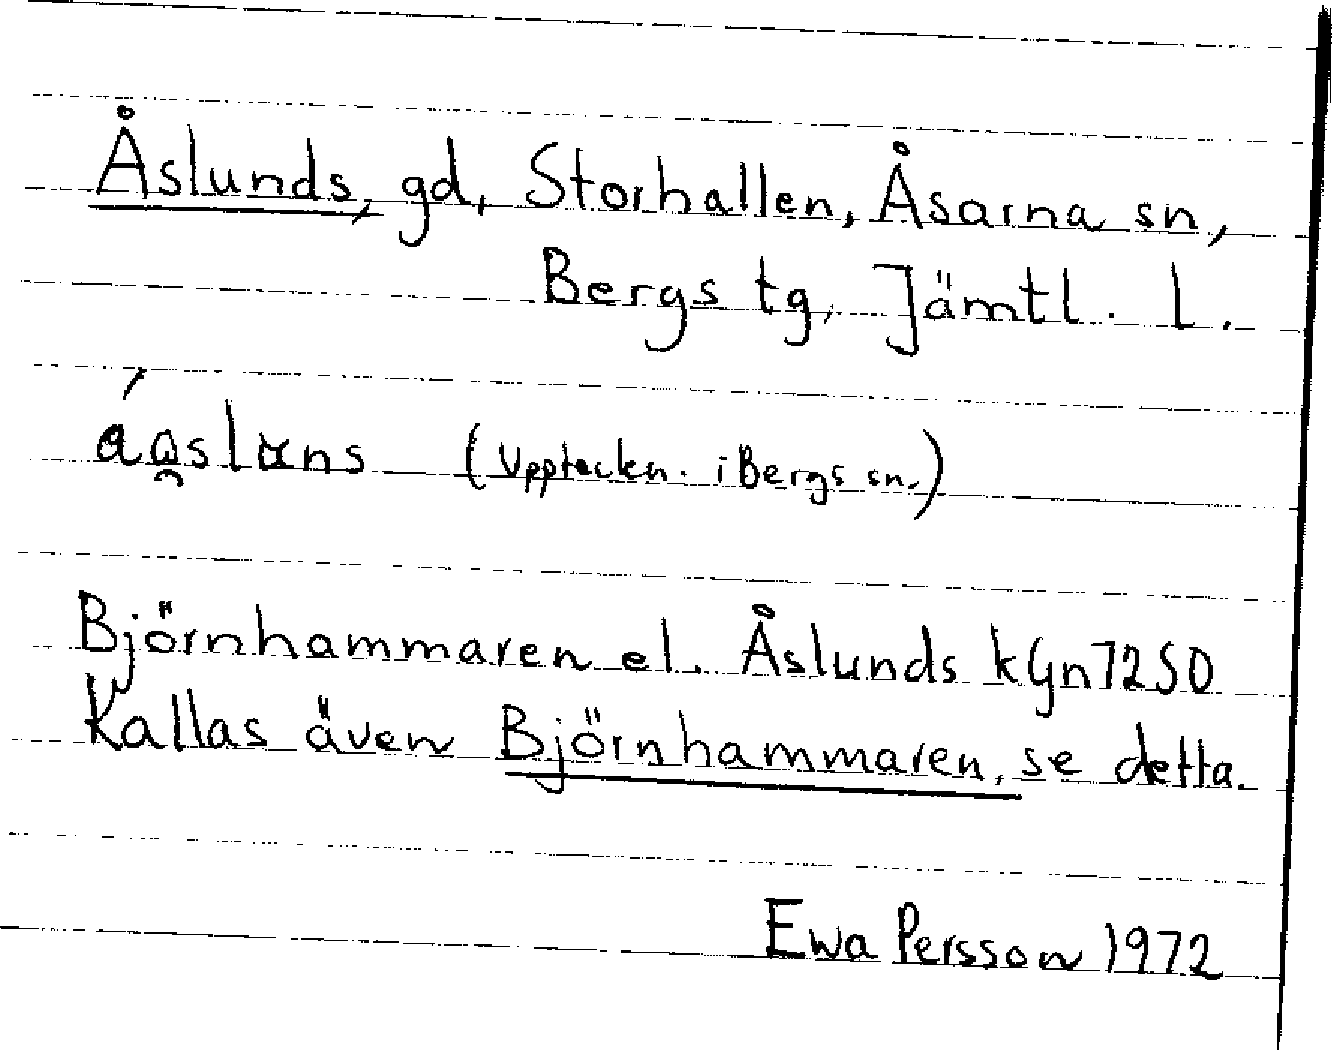 Åslunds, gd, Storhallen, Åsarna sn,
Bergs tg, Jämtl. l.
(Uppteckn. i Bergs sn.)
Björnhammaren el. Åslunds kGn7250
Kallas även Björnhammaren, se detta.
Ewa Persson 1972